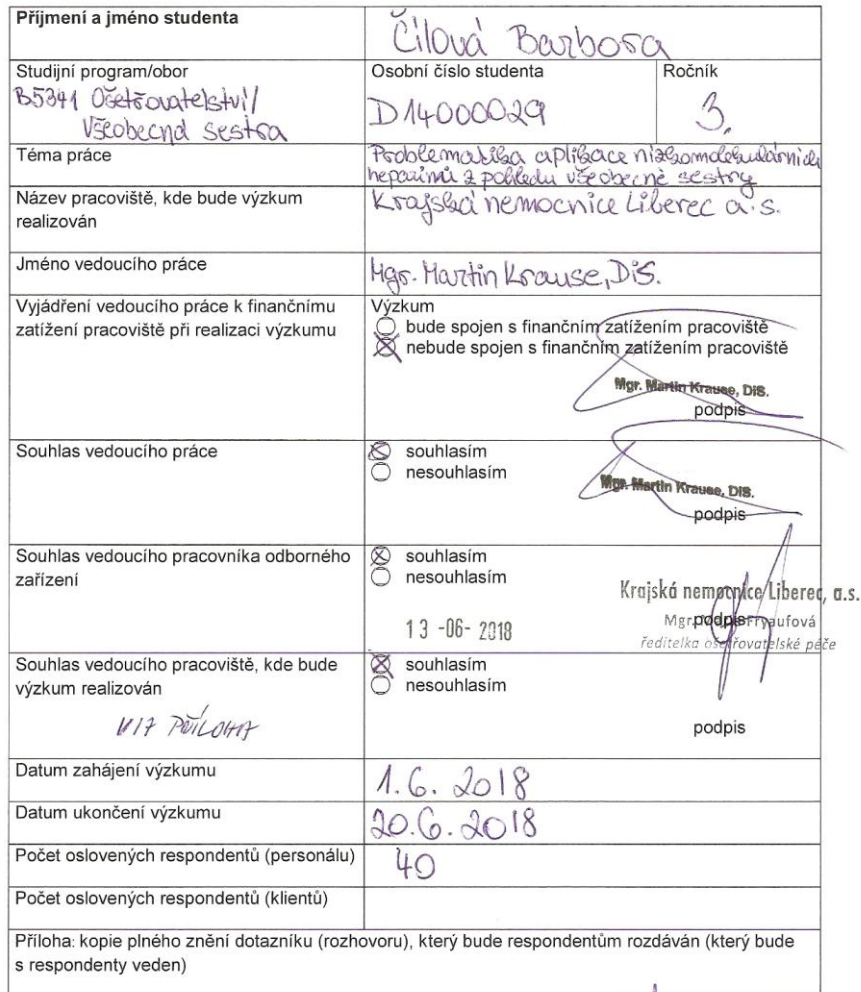 Příjmení a jméno studenta
Čilová Barbora
Studijní program/obor
B5341 Ošetřovatelství/
Všeobecná sestra
Osobní číslo studenta
D14000029
Ročník
3.
Téma práce
Problematika aplikace nízkomolekulárních
heparinů z pohledu všeobecné sestry
Název pracoviště, kde bude výzkum
realizován
Krajská nemocnice Liberec a.s.
Jméno vedoucího práce
Mgr. Martin Krause, DiS.
Vyjádření vedoucího práce k finančnímu
zatížení pracoviště při realizaci výzkumu
Výzkum
bude spojen s finančním zatížením pracoviště
nebude spojen s finančním zatížením pracoviště
Mgr. Martin Krause, DiS.
podpis
Souhlas vedoucího práce
souhlasím
nesouhlasím
Mgr. Martin Krause, DiS.
podpis
Souhlas vedoucího pracovníka odborného
zařízení
souhlasím
nesouhlasím
13 -06- 2018
Krajská nemocnice Liberec, a.s.
Mgr. Fryaufová
podpis
ředitelka ošetřovatelské péče
Souhlas vedoucího pracoviště, kde bude
výzkum realizován
VIZ PŘÍLOHA
souhlasím
nesouhlasím
podpis
Datum zahájení výzkumu
1.6. 2018
Datum ukončení výzkumu
20.6. 2018
Počet oslovených respondentů (personálu)
40
Počet oslovených respondentů (klientů)
Příloha: kopie plného znění dotazníku (rozhovoru), který bude respondentům rozdáván (který bude
s respondenty veden)